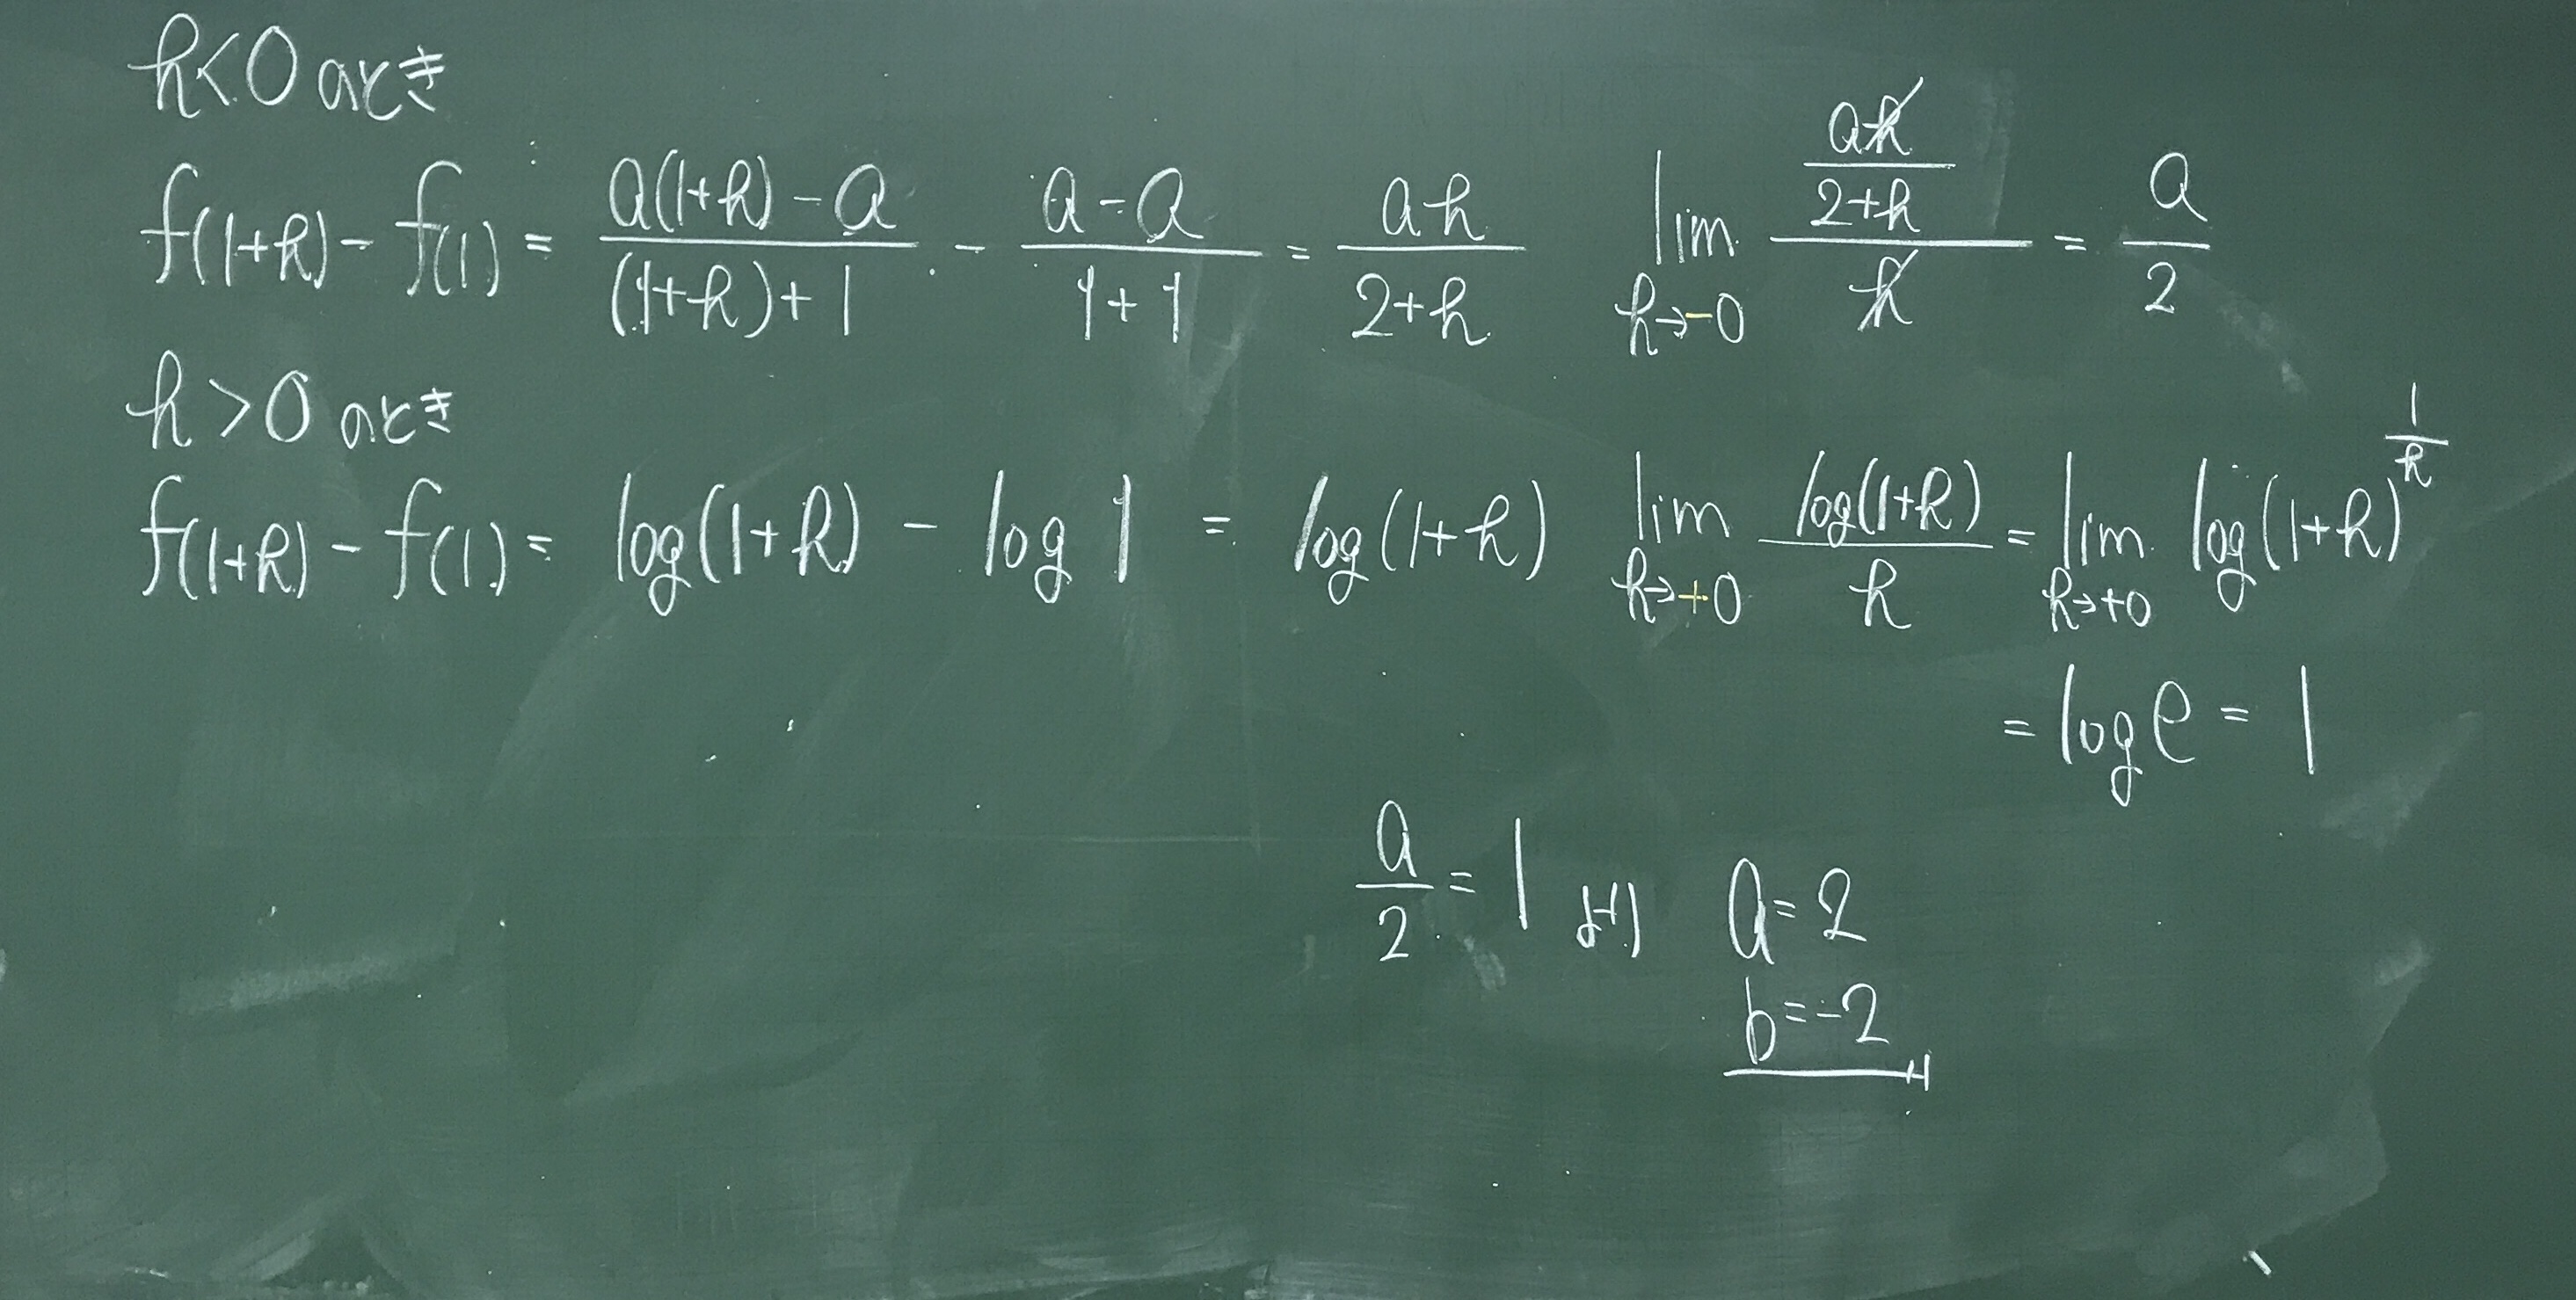 h<0 のとき
f(1+h) - f(1) = \frac{a(1+h)-a}{(1+h)+1} - \frac{a-a}{1+1} = \frac{ah}{2+h} \lim_{h→-0} \frac{\frac{ah}{2+h}}{h} = \frac{a}{2}
h>0 のとき
f(1+h) - f(1) = log(1+h) - log 1 = log(1+h) \lim_{h→+0} \frac{log(1+h)}{h} = \lim_{h→+0} log(1+h)^{\frac{1}{h}}
= log e = 1
\frac{a}{2} = 1 より a=2
b=-2